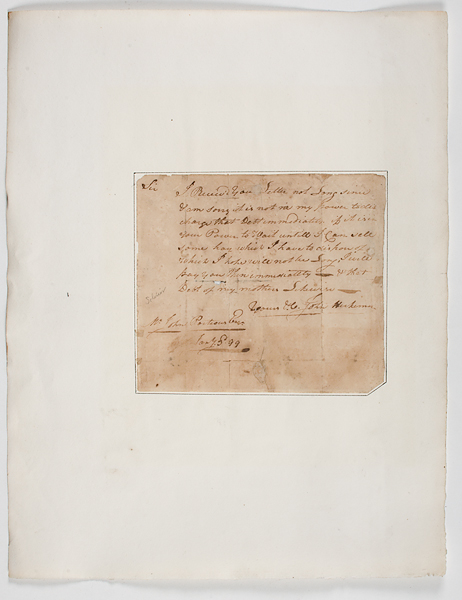 Sir I Received your Letter not Long since
I am sorry it is not in my power to dis
charge that Debt immediatly if it is in
your Power to wait untill I Can sell
some hay which I have to dispose of
which I hope will not be Long I will
pay you then immediatly & that
Debt of my mothers Likewise
Yours &c. John
Mr. John Esqr.
Jany 99